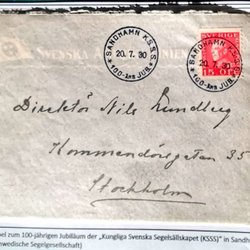 SANDHAMN K.S.S.S.
20.7.30
* 100-ÅRS JUB. *
SVERIGE
15 ÖRE
SANDHAMN K.S.S.S.
20.7.30
* 100-ÅRS JUB. *
Direktör Nils Lundberg
Kommendörsgatan 35
Stockholm
bei zum 100-jährigen Jubiläum der „Kungliga Svenska Segelsällskapet (KSSS)" in Sand
wedische Segelgesellschaft)